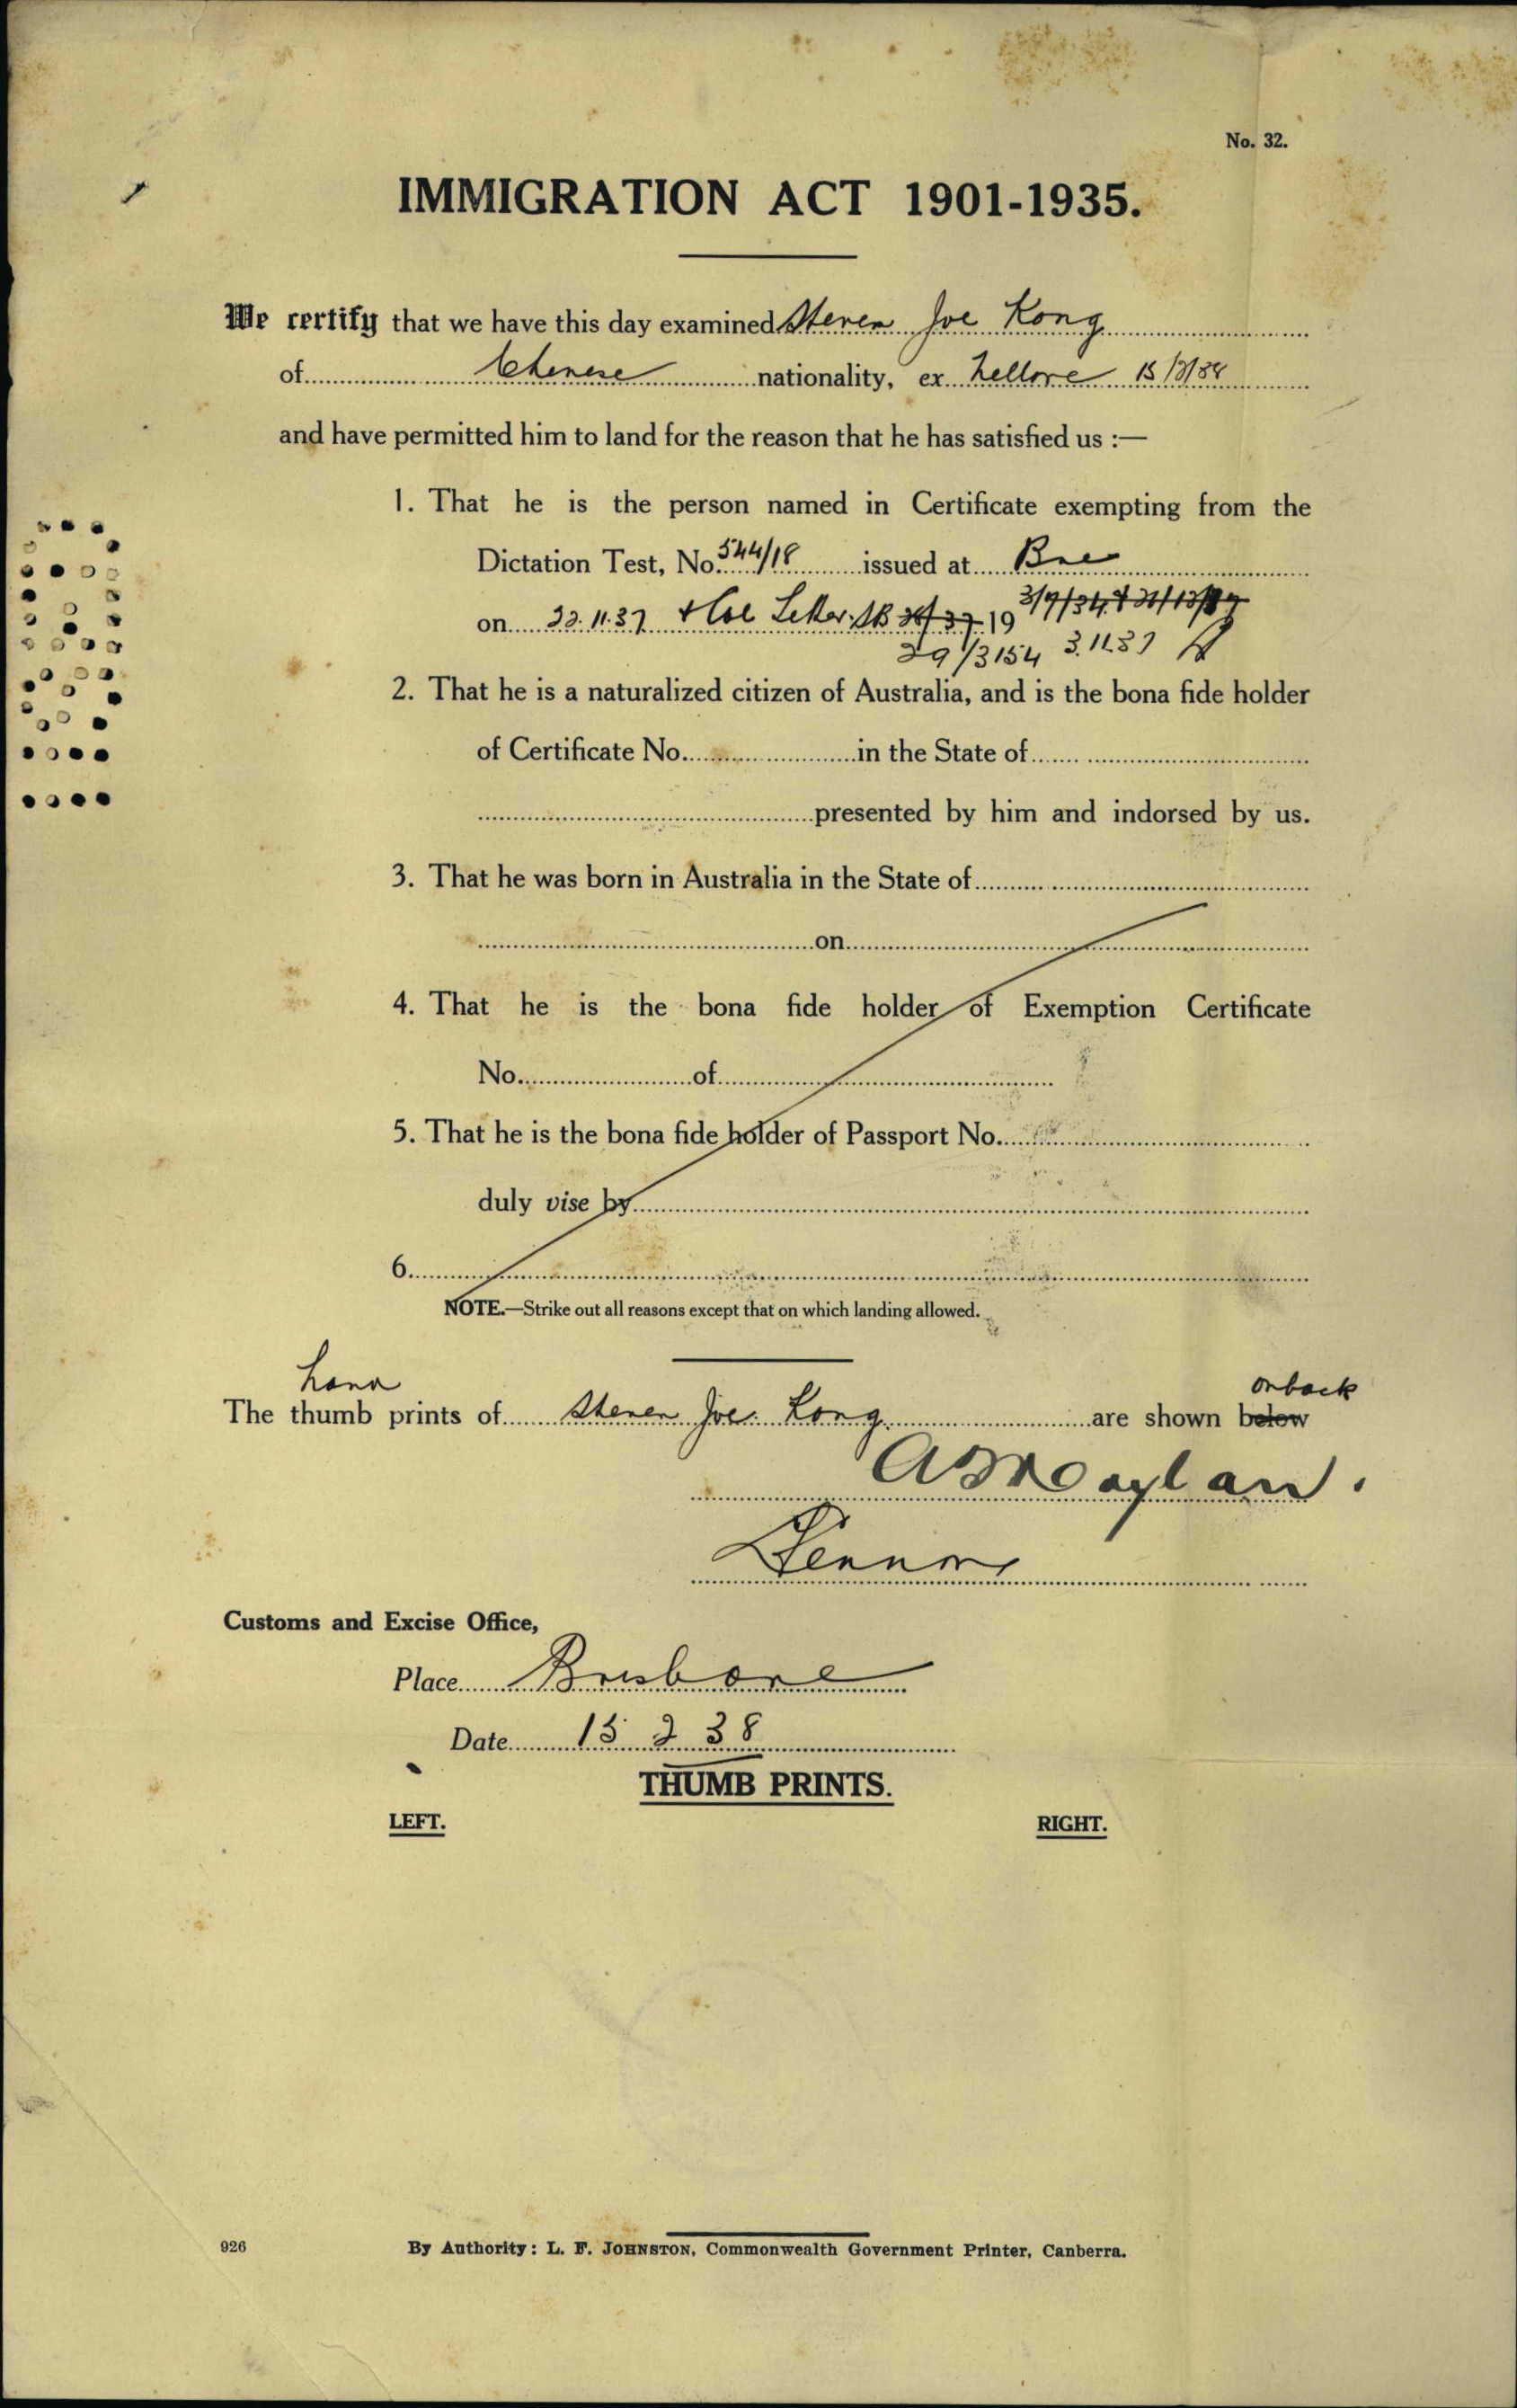 No. 32.
IMMIGRATION ACT 1901-1935.
We certify that we have this day examined Steven Joe Kong
of Chinese nationality, ex Nellore 15/2/38
and have permitted him to land for the reason that he has satisfied us :—
1. That he is the person named in Certificate exempting from the
Dictation Test, No. 544/18 issued at Bne
on 22.11.37 Letter 19
29/3154 3.11.37
2. That he is a naturalized citizen of Australia, and is the bona fide holder
of Certificate No. in the State of
presented by him and indorsed by us.
3. That he was born in Australia in the State of
on
4. That he is the bona fide holder of Exemption Certificate
No. of
5. That he is the bona fide holder of Passport No.
duly vise by
6.
NOTE.—Strike out all reasons except that on which landing allowed.
hand on back
The thumb prints of Steven Joe Kong are shown below
Customs and Excise Office,
Place Brisbane
Date 15 2 38
THUMB PRINTS.
LEFT. RIGHT.
926 By Authority: L. F. JOHNSTON, Commonwealth Government Printer, Canberra.